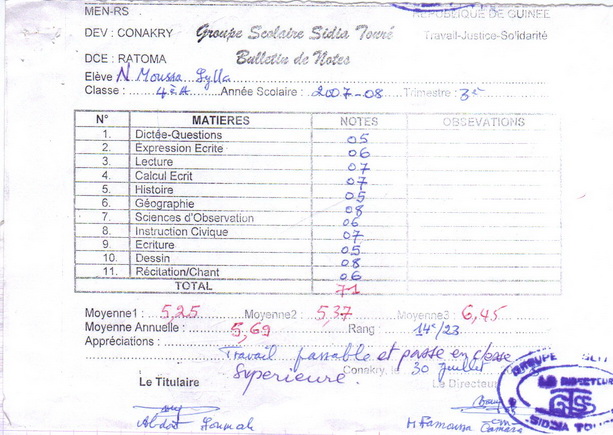 MEN-RS REPUBLIQUE DE GUINEE
DEV : CONAKRY Groupe Scolaire Sidia Touré Travail-Justice-Solidarité
DCE : RATOMA Bulletin de Notes
Elève N Moussa Sylla
Classe : 4è A Année Scolaire : 2007-08 Trimestre : 3è
N° MATIERES NOTES OBSEVATIONS
1. Dictée-Questions 05
2. Expression Ecrite 06
3. Lecture 07
4. Calcul Ecrit 07
5. Histoire 05
6. Géographie 08
7. Sciences d'Observation 06
8. Instruction Civique 07
9. Ecriture 05
10. Dessin 08
11. Récitation/Chant 06
TOTAL 71
Moyenne1 : 5,25 Moyenne2 : 5,37 Moyenne3 : 6,45
Moyenne Annuelle : 5,69 Rang : 14è/23
Appréciations :
Travail passable et passe en classe
Superieure. Conakry, le 30 Juillet
Le Titulaire Le Directeur
GROUPE
LE DIRECTEUR
GSST
SIDIA TOURE